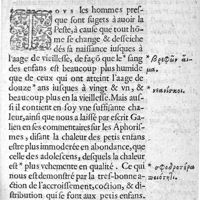 TOVS les hommes pres-
que sont sugets à auoir la
Peste, à cause que tout hõ
me se change & desseiche
dés sa naissance iusques à
l'aage de vieillesse, de façõ que le sang
des petis enfans est beaucoup plus humide
que de ceux qui ont atteint l'aage
de douze * ans iusques à vingt & vn, &
beaucoup plus en la vieillesse. Mais aus-
si il contient en soy vne suffisante cha-
leur, ainsi que nous a laissé par escrit Ga-
lien en ses commentaires sur les Aphoris-
mes, disant la chaleur des petis enfans
estre plus immoderée en abondance, que
celle des adolescens, desquels la chaleur
est * plus vehemente en qualité. Ce qui
nous est demonstré par la tres-bonne
action de l'accroissement, coctiõ, & di-
stribution qui se font aux petis enfans.